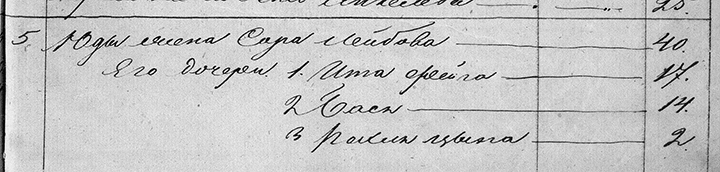 25.
5. Юды жена Сора Лейбова 40.
Его дочери 1. Ита Фейга 17.
2 Хася 14.
3 Рохля 2